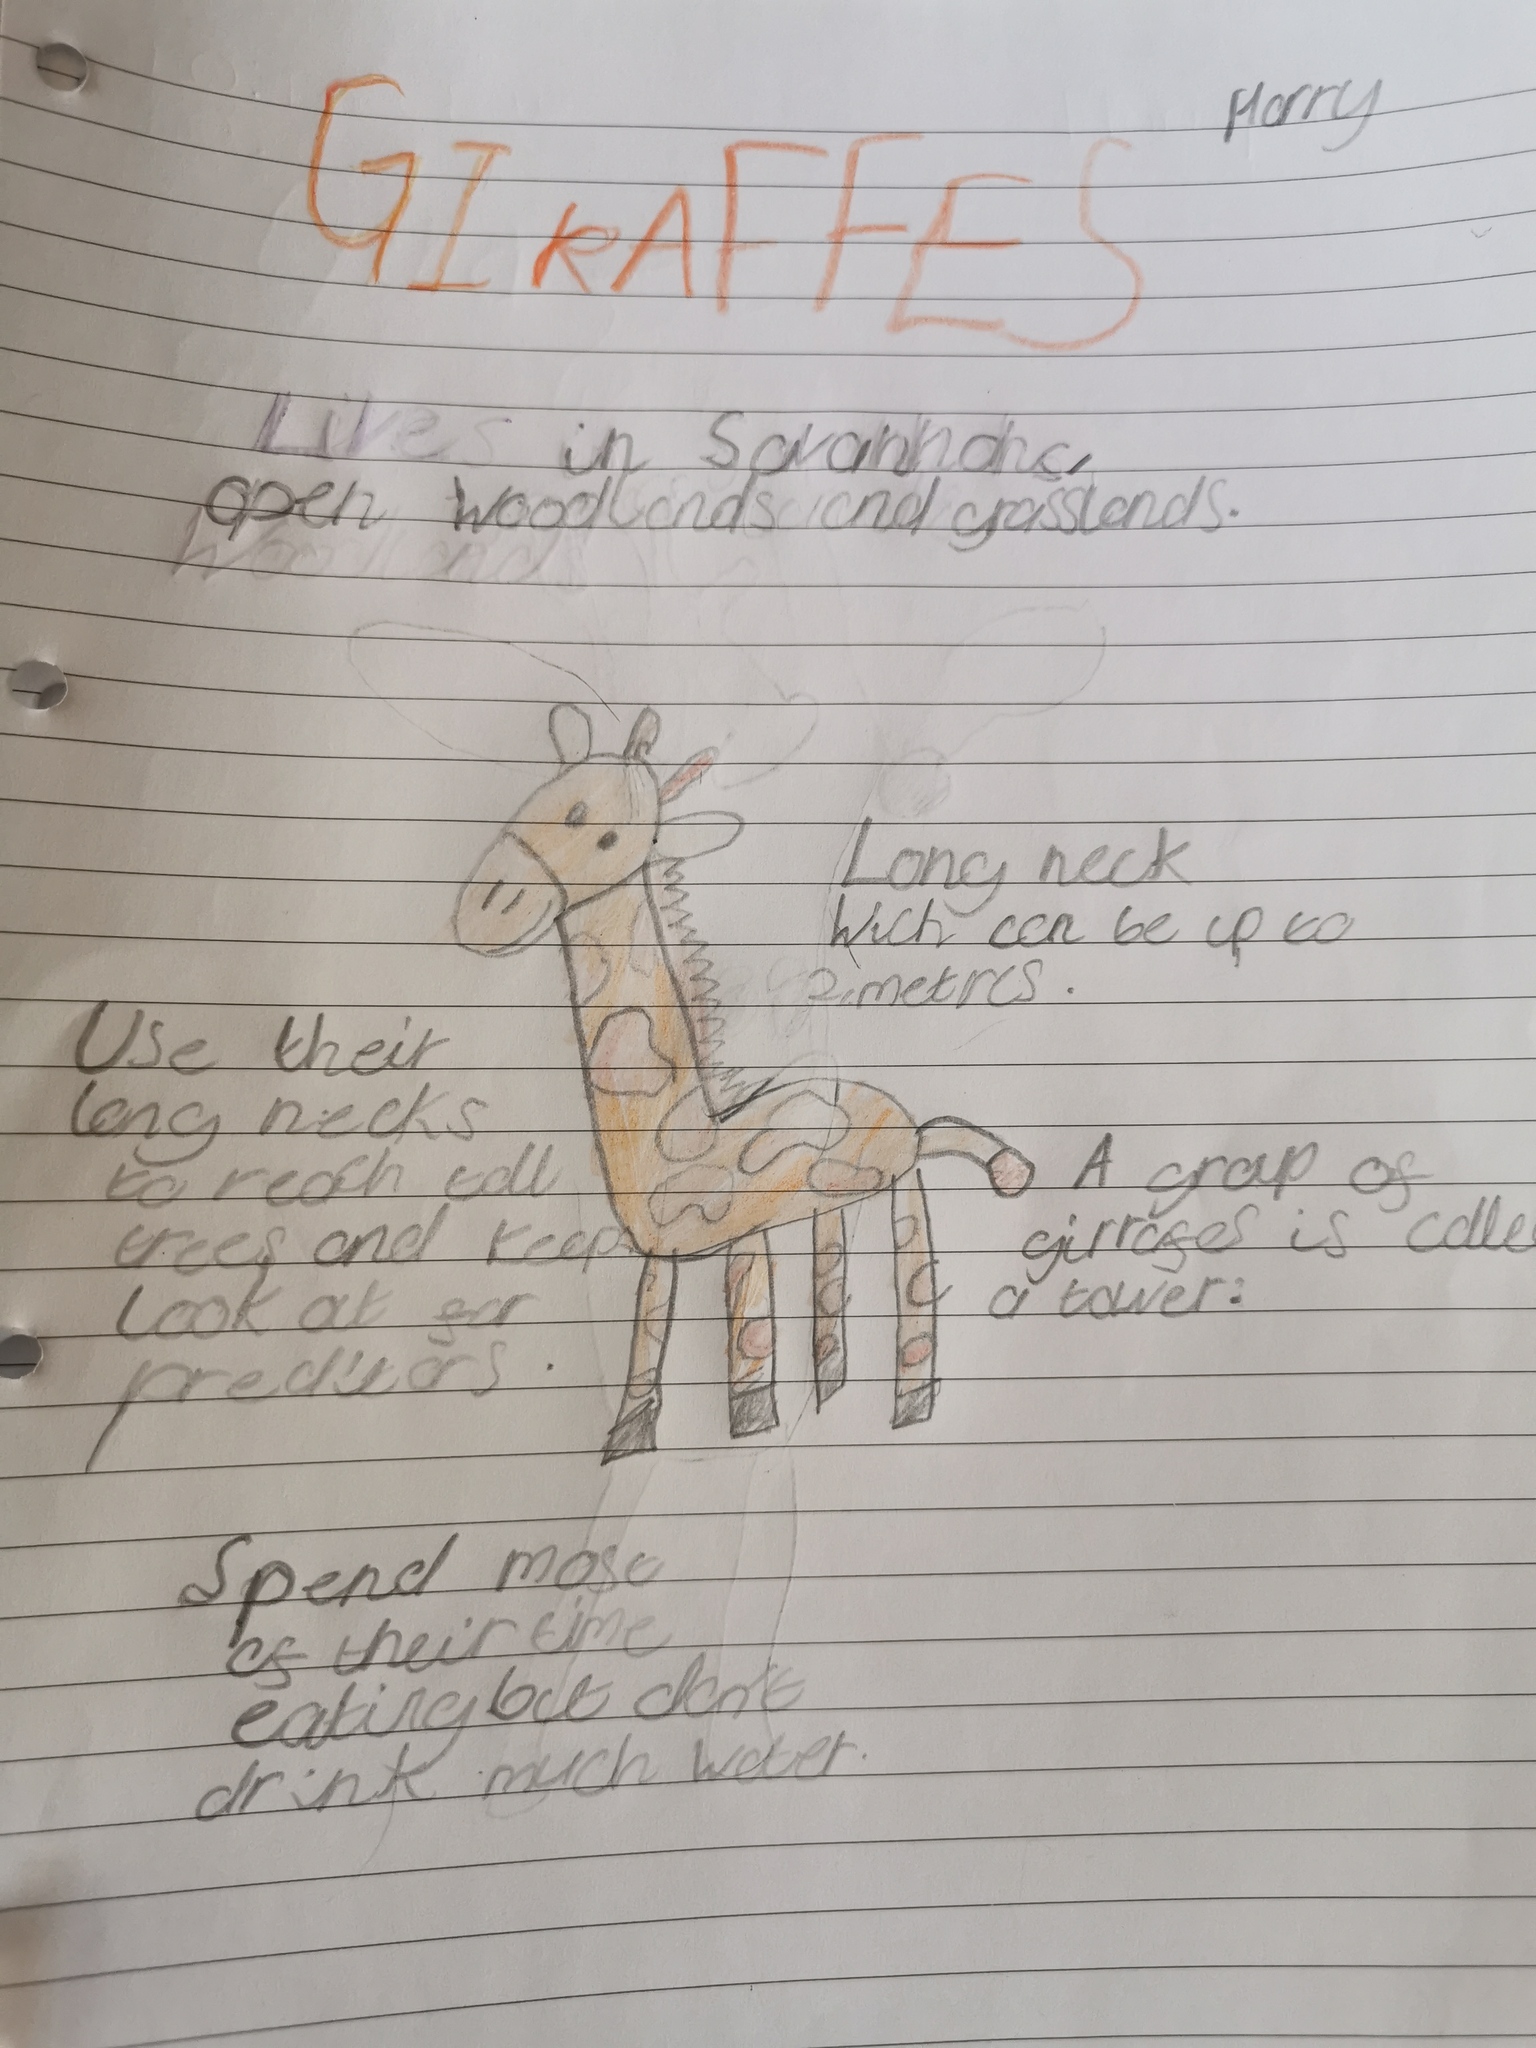 Harry
GIRAFFES
Lives in Savannahs,
open woodlands and grasslands.
Woodlands
Long neck
Wich can be up to
2.metres.
Use their
long necks
to reach tall
trees and keep
look at for
preditors.
A group of
girrafes is calle
a tower:
Spend most
of their time
eating but dont
drink much water.